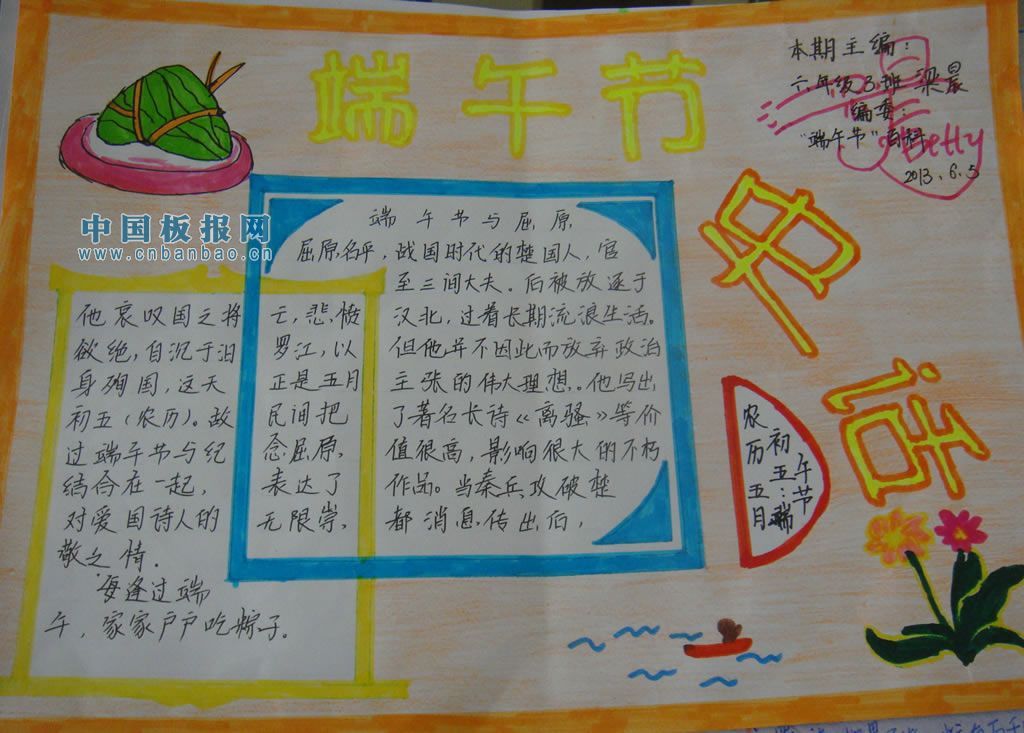 端午节
史话
本期主编:
六年级3班 梁晨
编委:
"端午节"百科
Betty
2013.6.5
中国板报网
www.cnbanbao.cn
端午节与屈原
屈原名平,战国时代的楚国人,官
至三间大夫。后被放逐于
汉北,过着长期流浪生活。
但他并不因此而放弃政治
主张的伟大理想。他写出
了著名长诗《离骚》等价
值很高,影响很大的不朽
作品。当秦兵攻破楚
都消息传出后,
他哀叹国之将亡,悲愤
欲绝,自沉于汨罗江,以
身殉国,这天正是五月
初五(农历)。故民间把
过端午节与纪念屈原,
结合在一起,表达了
对爱国诗人的无限崇,
敬之情.
每逢过端
午,家家户户吃粽子。
农历五月
初五:端
午节